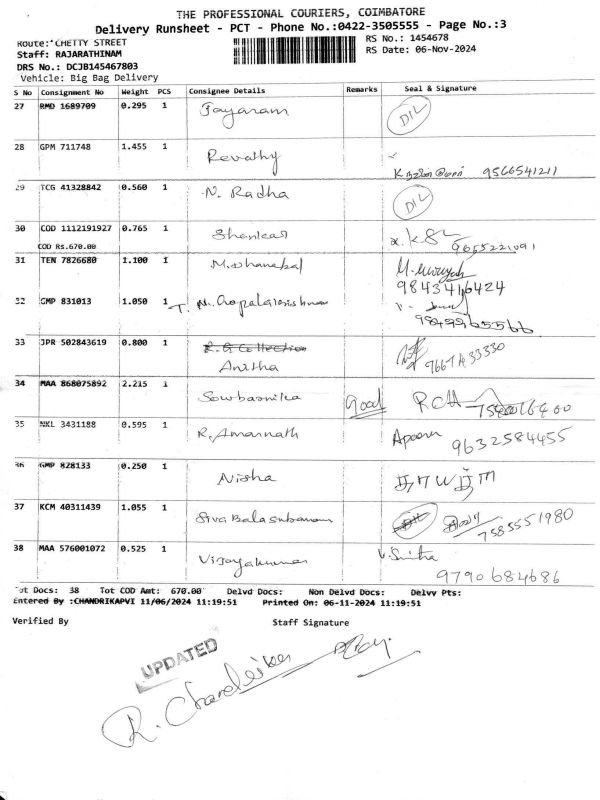 THE PROFESSIONAL COURIERS, COIMBATORE
Delivery Runsheet - PCT - Phone No.:0422-3505555 - Page No.:3
Route: CHETTY STREET RS No.: 1454678
Staff: RAJARATHINAM RS Date: 06-Nov-2024
DRS No.: DCJB145467803
Vehicle: Big Bag Delivery
S No Consignment No Weight PCS Consignee Details Remarks Seal & Signature
27 RMD 1689709 0.295 1 Jayaram DIL
28 GPM 711748 1.455 1 Revathy
9566541211
29 TCG 41328842 0.560 1 N. Radha DIL
30 COD 1112191927 0.765 1 Shankar 9655221091
COD Rs.670.00
31 TEN 7826680 1.100 1 M. Dhanabal M. Murugah
9843416424
32 GMP 831013 1.050 1 T. N. Gopalakrishnan
9849965566
33 JPR 502843619 0.800 1 R.G Collection
Anitha
34 MAA 868075892 2.215 1 Sowbarnika Good RCH
35 NKL 3431188 0.595 1 R. Amarnath Apoorv
9632584455
36 GMP 828133 0.250 1 Nisha
37 KCM 40311439 1.055 1 Siva Balasubamam 7585551980
38 MAA 576001072 0.525 1 Vijayakumar V. Smitha
9790684686
Tot Docs: 38 Tot COD Amt: 670.00 Delvd Docs: Non Delvd Docs: Delvy Pts:
Entered By :CHANDRIKAPVI 11/06/2024 11:19:51 Printed On: 06-11-2024 11:19:51
Verified By Staff Signature
UPDATED
R. Chandrika